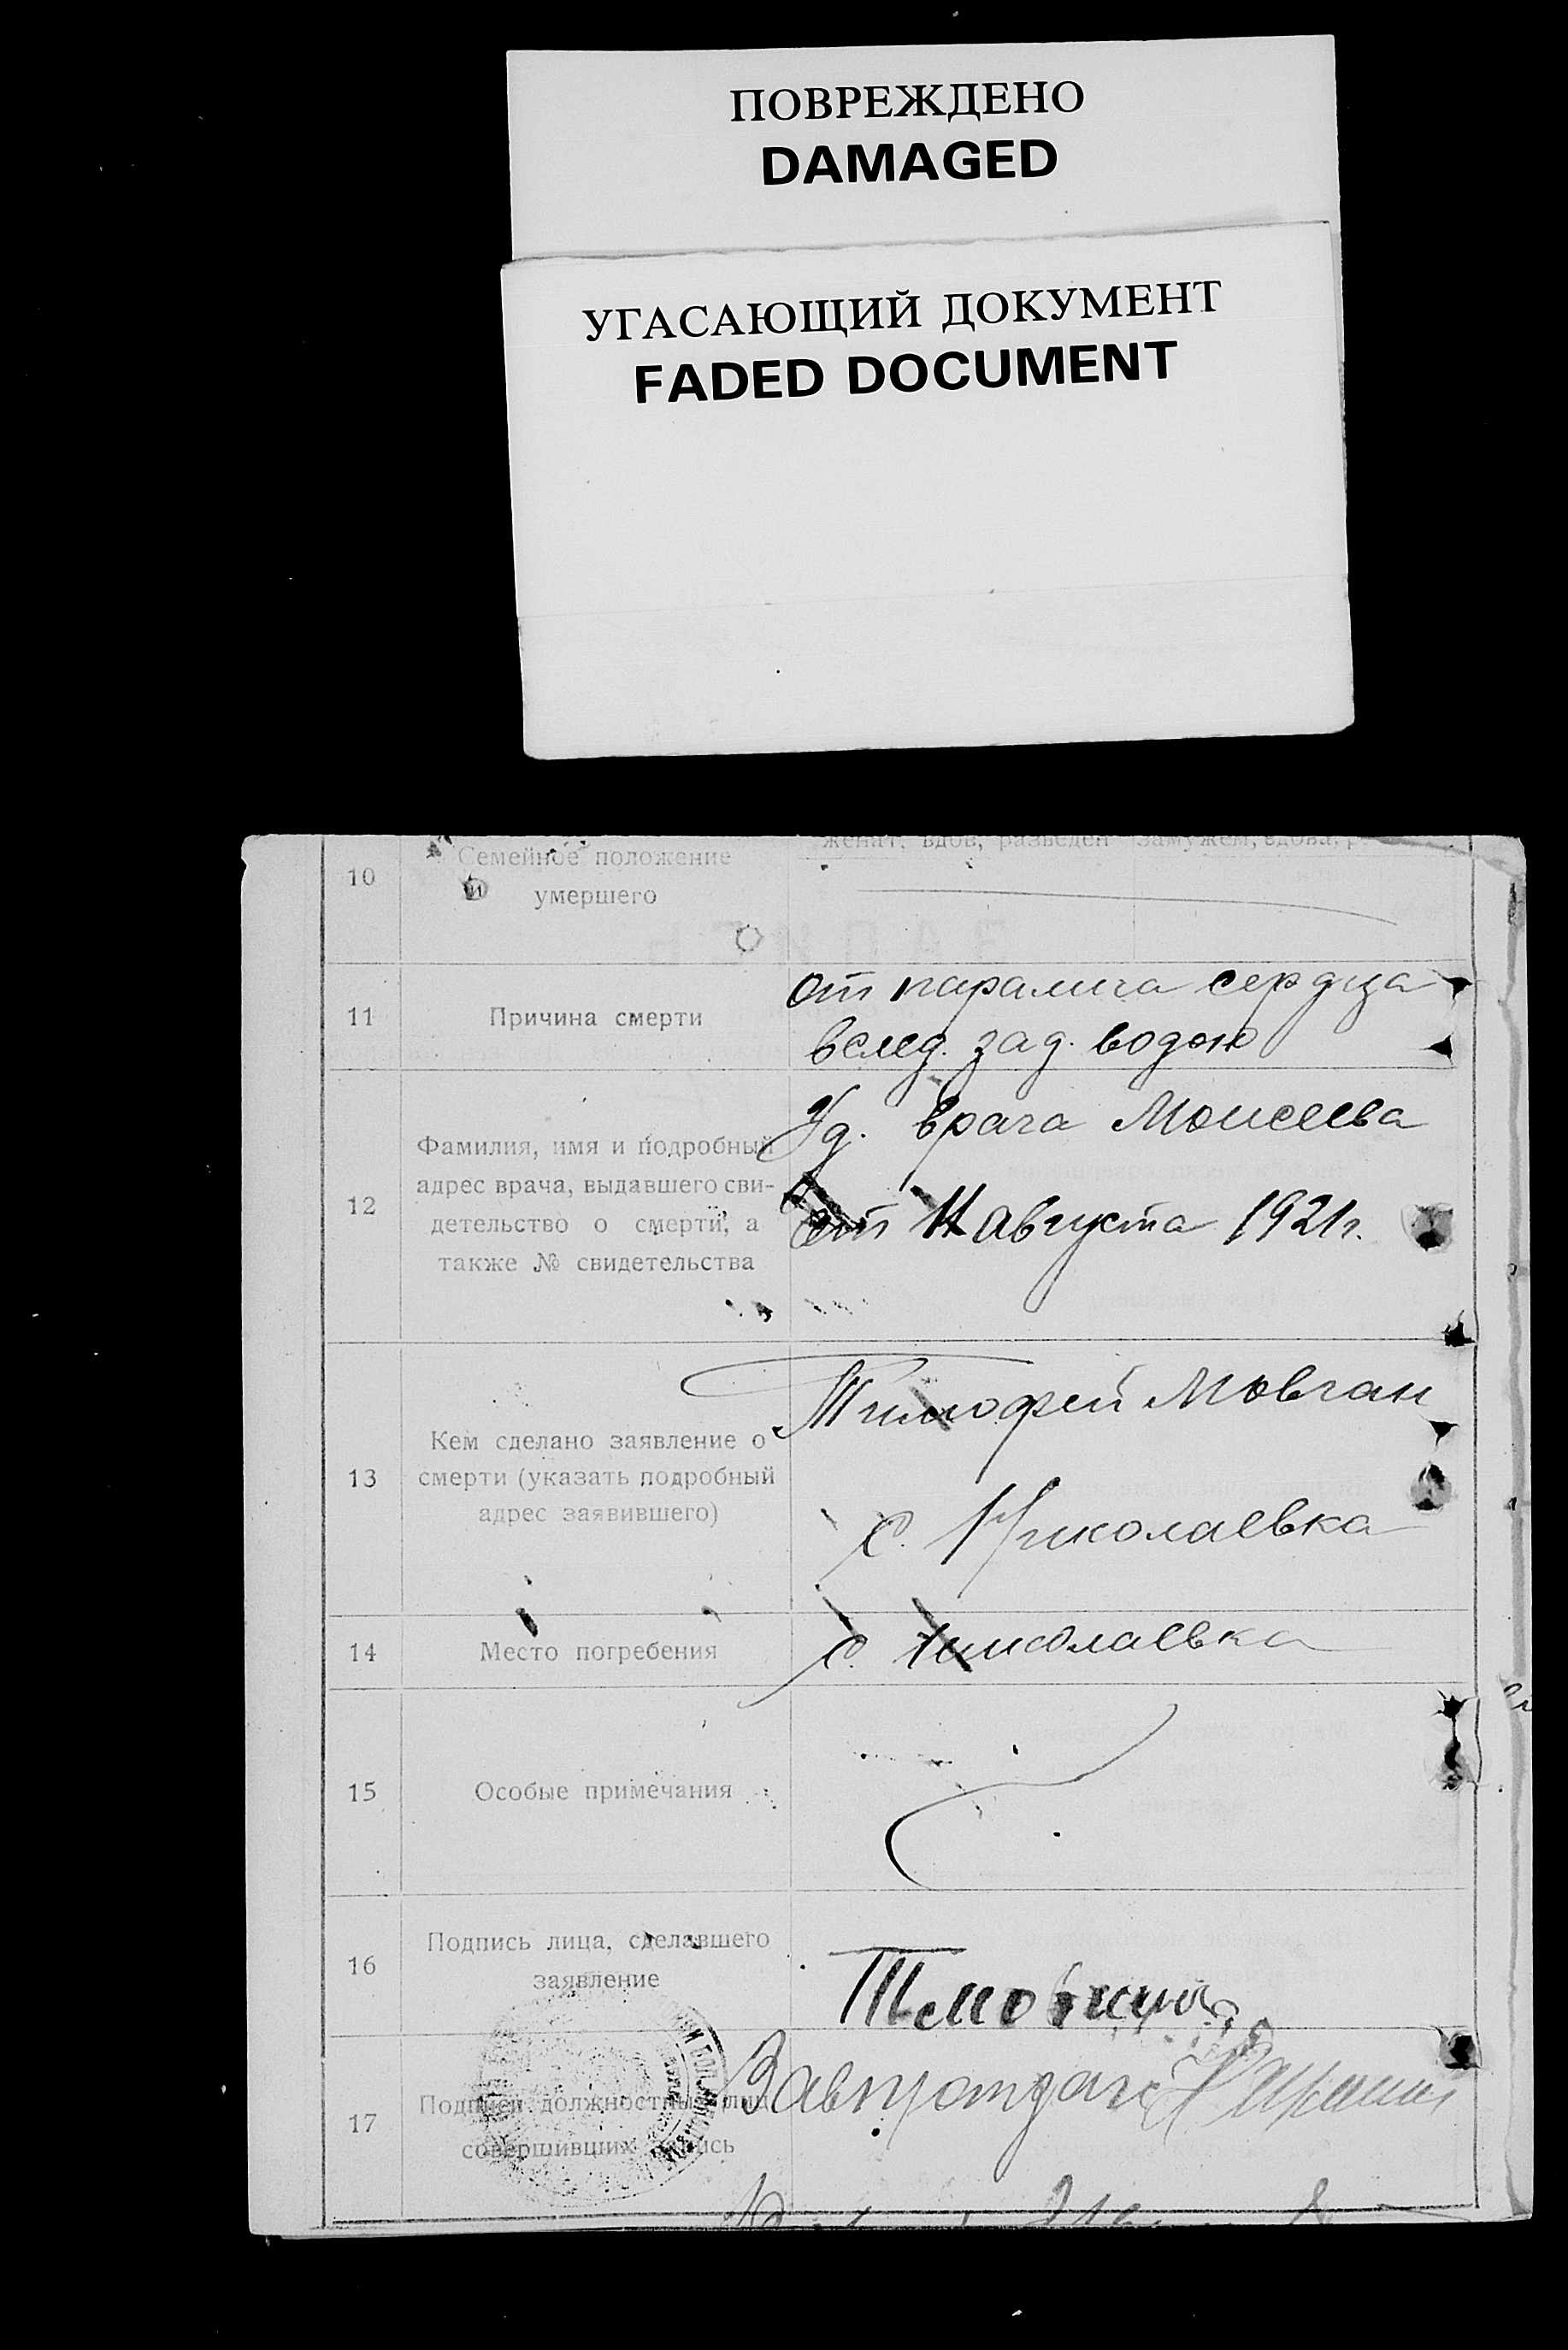 ПОВРЕЖДЕНО
DAMAGED
УГАСАЮЩИЙ ДОКУМЕНТ
FADED DOCUMENT
женат, вдов, разведен замужем, вдова,
10
Семейное положение
умершего
11
Причина смерти
от паралича сердца
вслед. зад. водою
12
Фамилия, имя и подробный
адрес врача, выдавшего сви-
детельство о смерти, а
также № свидетельства
Уд. врача Моисеева
от 11 августа 1921 г.
13
Кем сделано заявление о
смерти (указать подробный
адрес заявившего)
Тимофей Мовчан
с. Николаевка
14
Место погребения
с. Николаевка
15
Особые примечания
16
Подпись лица, сделавшего
заявление
17
Подписи должностных лиц
совершивших запись